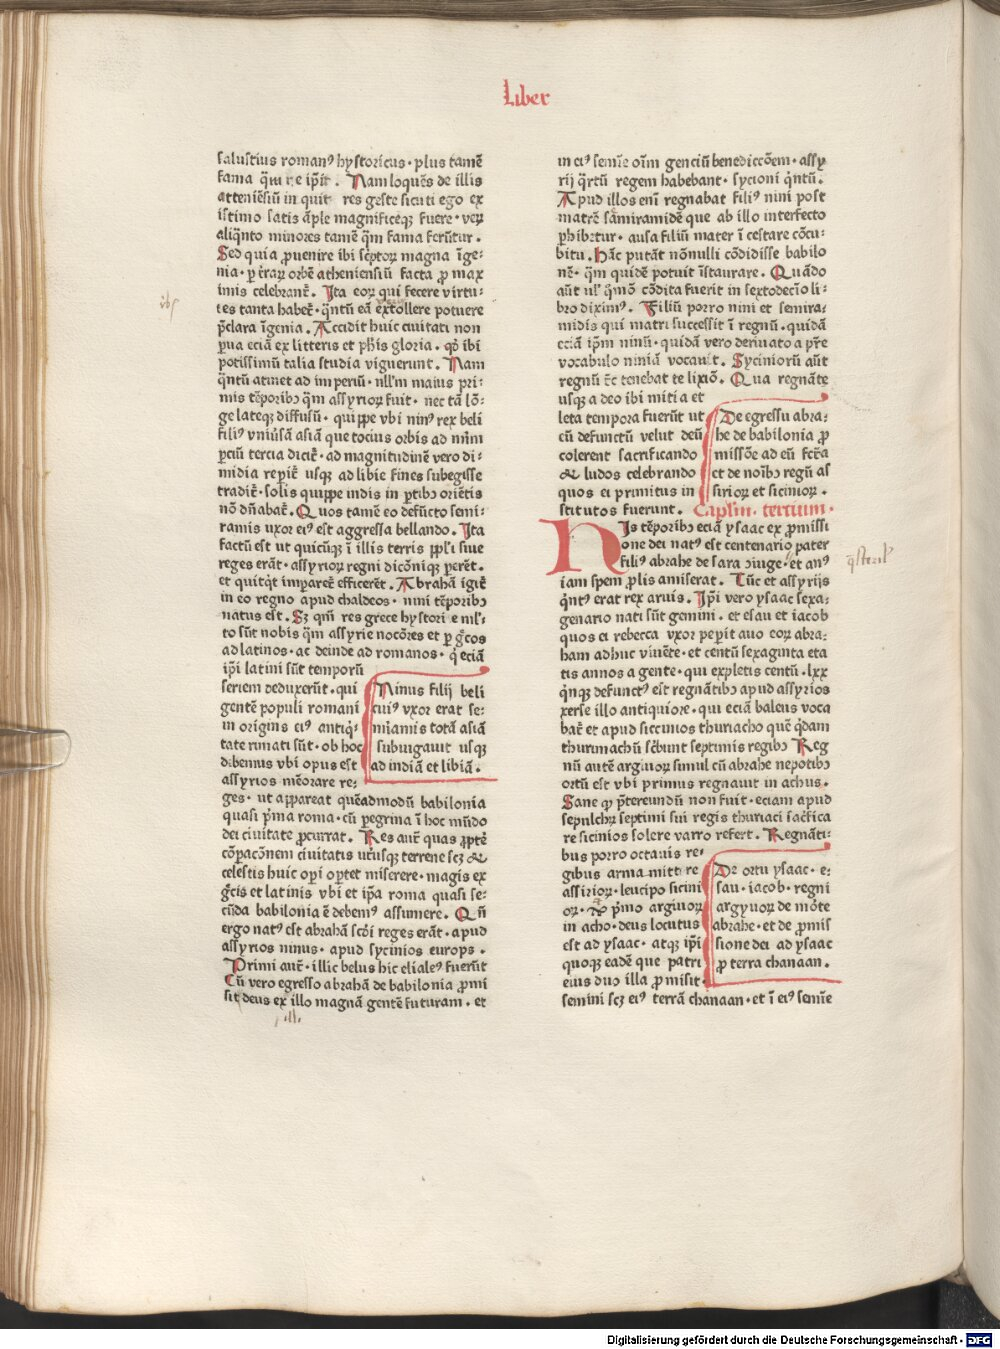 Liber
salustius roman⁹ hystoricus · plus tamē
fama q̄m re ip̄it . Nam loquēs de illis
atteniēsiū in quit res geste sicuti ego ex
istimo satis āple magnificeq₃ fuere · veꝝ
aliqn̄to minores tamē q̄m fama ferūtur .
Sed quia ꝓuenire ibi sc̄ptoꝝ magna īge⸗
nia · ꝑ t̄raꝝ orbē atheniensiū facta ꝓ max
imis celebrant᷑ . Ita eoꝝ qui fecere virtu⸗
tes tanta habet᷑ · q̄ntū eā extollere potuere
p̄clara īgenia . Accidit huic ciuitati non
ꝑua eciā ex litteris et ph̄is gloria . qđ ibi
potissimū talia studia viguerunt . Nam
q̄ntū atinet ad imperiū · nll'm maius pri⸗
mis tēporibꝫ assyrioꝝ fuit · nec tā lō⸗
ge lateq₃ diffusū · quippe vbi nin⁹ rex beli
fili⁹ vniūsā asiā que tocius orbis ad nūm
ꝑciū tercia dicit᷑ · ad magnitudinē vero di⸗
midia reꝑit᷑ usq₃ ad libie fines subegisse
tradit᷑ · solis quippe indis in ꝑtibꝫ oriētis
nō dn̄abat᷑ . Quos tamē eo defūcto semi⸗
ramis uxor ei⁹ est aggressa bellando . Ita
factū est ut quicūq₃ ī illis terris ppl'i siue
reges erāt · assyrioꝝ regni dicōniq₃ ꝑerēt .
et quitq̄t imparet᷑ efficerēt . Abrahā igit᷑
in eo regno apud chaldeos · nini tēporibꝫ
natus est . Sꝫ qm̄ res grece hystorie ml'⸗
to sūt nobis q̄m assyrie nocōres et ꝑ g̃cos
ad latinos · ac deinde ad romanos · q̄ eciā
ip̄i latini sūt temporū
seriem deduxerūt . qui
gentē populi romani
in origīns ei⁹ antiq̇⸗
tate rimati sūt · ob hoc
debemus vbi opus est
assyrios mēorare re⸗
Ninus filij beli
cui⁹ vxor erat se⸗
miamis totā asiā
subiugauit usq₃
ad indiā et libiā .
ges · ut appareat quēadmodū babilonia
quasi p̄ma roma · cū ꝑegrina ī hoc mūdo
dei ciuitate ꝓcurrat . Res aut᷑ quas ꝓpt᷑
cōꝑacōnem ciuitatis utriusq₃ terrene scꝫ &
celestis huic oꝑi oꝑtet miscrere · magis ex
g̃cis et latinis vbi et ip̄a roma quasi se⸗
cūda babilonia ē debem⁹ assumere . Qn̄
ergo nat⁹ est abrahā scōi reges erāt · apud
assyrios ninus · apud sycinios europs .
Primi aut᷑ · illic belus hic eliale⁹ fuerūt
Cū vero egresso abrahā de babilonia ꝓmi
sit deus ex illo magnā gentē futuram · et
in ei⁹ semīe oīm genciū benediccōem · assy
rij q̄rtū regem habebant · sycioni q̄ntū .
Apud illos enī regnabat fili⁹ nini post
matrē samiramidē que ab illo interfecto
ꝓhibetur · ausa filiū mater ī cestare cōcu⸗
bitu . hāc putāt nōnulli cōdidisse babilo
nē · q̄m quidē potuit īstaurare . Quādo
aūt ul' q̄mō cōdita fuerit in sextodecīo li⸗
bro dixim⁹ . Filiū porro nini et semira⸗
midis qui matri successit ī regnū · quidā
eciā ip̄m ninū · quidā vero deriuato a pr̄e
vocabulo niniā vocauit . Syciniorū aūt
regnū tc̄ tenebat te lixiō . Qua regnāte
usq₃ a deo ibi miti a et
leta tempora fuerūt ut
cū defunctū velut deū
colerent sacrificando
& ludos celebrando
quos ei primitus in
stitutos fuerunt .
De egressu abra⸗
he de babilonia ꝓ
missōe ad eū fc̄ta
et de noībꝫ regū as
sirioꝝ et sicinioꝝ .
Capl'm . tercium .
His tēporibꝫ eciā ysaac ex ꝓmissi
one dei nat⁹ est centenario pater
fili⁹ abrahe de sara ↄiuge · et an⁹
iam spem ꝓlis amiserat . Tūc et assyrijs
q̄nt⁹ erat rex aruis . Ip̄i vero ysaac sexa⸗
genario nati sūt gemini . et esau et iacob
quos ei rebecca vxor peperit auo eoꝝ abra⸗
ham adhuc viuēte · et centū sexaginta eta
tis annos a gente · qui expletis centū · lxx
q̄nq₃ defunct⁹ est regnātibꝫ apud assyrios
xerse illo antiquiore · qui eciā baleus voca
bat᷑ et apud siccinios thuriacho quē q̄dam
thurimachū sc̄bunt septimis regibꝫ Reg
nū autē argiuoꝝ simul cū abrahe nepotibꝫ
ortū est vbi primus regnauit in achus .
Sane qꝫ p̄tereundū non fuit · eciam apud
sepulchꝝ septimi sui regis thuriaci sac̄fica
re sicinios solere varro refert . Regnāti⸗
bus porro octauis re⸗
gibus arma mittre
assirioꝝ · leucipo sicini
oꝝ · & p̄mo argiuoꝝ
in acho · deus locutus
est ad ysaac · atq₃ ip̄i
quoq₃ eadē que patri
eius duo illa ꝓmisit ·
De ortu ysaac · e⸗
sau · iacob · regni
argyuoꝝ de mōte
abrahe · et de ꝓmis
sione dei ad ysaac
ꝓ terra chanaan .
semini scꝫ ei⁹ terrā chanaan · et ī ei⁹ semīe
Digitalisierung gefördert durch die Deutsche Forschungsgemeinschaft - DFG